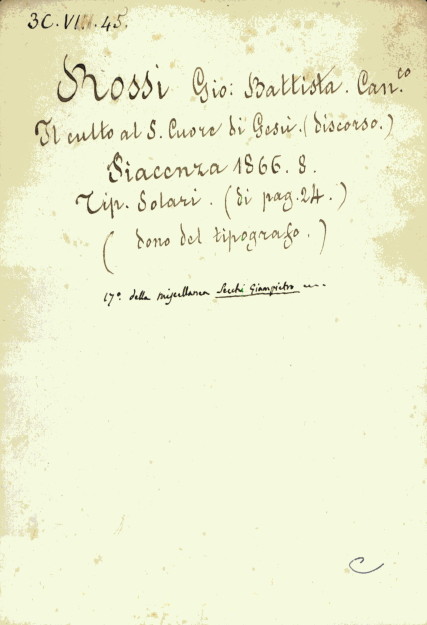 3C. VI. 45.
Rossi Gio: Battista. Can.co
Il culto al S. Cuore di Gesù. (discorso.)
Piacenza 1866. 8.
Tip. Solari. (di pag. 24.)
(dono del tipografo.)
17º. della miscellanea Secchi Giampietro
C